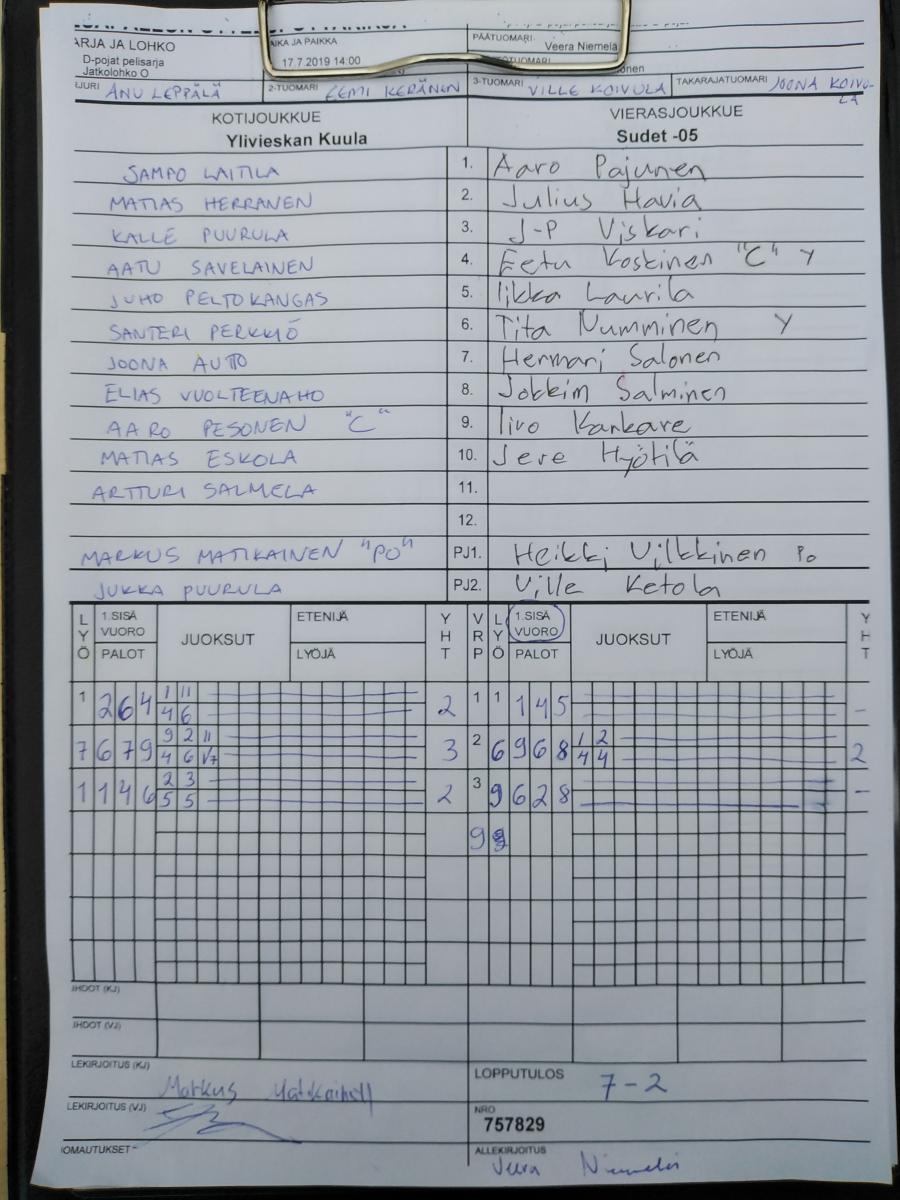 ARJA JA LOHKO
D-pojat pelisarja
Jatkolohko O
AIKA JA PAIKKA
17.7.2019 14:00
PÄÄTUOMARI
Veera Niemelä
IJURI ANU LEPPÄLÄ 2-TUOMARI EEMI KERÄNEN 3-TUOMARI VILLE KOIVULA TAKARAJATUOMARI JOONA KOIVU-
LA
KOTIJOUKKUE VIERASJOUKKUE
Ylivieskan Kuula Sudet -05
SAMPO LAITILA 1. Aaro Pajunen
MATIAS HERRANEN 2. Julius Havia
KALLE PUURULA 3. J-P Viskari
AATU SAVELAINEN 4. Eetu Koskinen "C" Y
JUHO PELTOKANGAS 5. Iikka Laurila
SANTERI PERKKIÖ 6. Tita Numminen Y
JOONA AUTIO 7. Hermani Salonen
ELIAS VUOLTEENAHO 8. Jokkim Salminen
AARO PESONEN "C" 9. Iivo Kankare
MATIAS ESKOLA 10. Jere Hyötilä
ARTTURI SALMELA 11.
12.
MARKUS MATIKAINEN "PO" PJ1. Heikki Vilkkinen Po
JUKKA PUURULA PJ2. Ville Ketola
LYÖ 1.SISÄ VUORO PALOT JUOKSUT ETENIJÄ LYÖJÄ YHT VRP LYÖ 1.SISÄ VUORO PALOT JUOKSUT ETENIJÄ LYÖJÄ YHT
1 2 6 4 1 11 2 1 1 1 4 5 -
4 6
7 6 7 9 9 2 11 3 2 6 9 6 8 1 2 2
4 6 V7 4 4
1 1 4 6 2 3 2 3 9 6 2 8 -
5 5
9
IHDOT (KJ)
IHDOT (VJ)
LEKIRJOITUS (KJ) Markus Matikainen
LOPPUTULOS 7-2
LEKIRJOITUS (VJ)
NRO
757829
IOMAUTUKSET
ALLEKIRJOITUS
Veera Niemelä